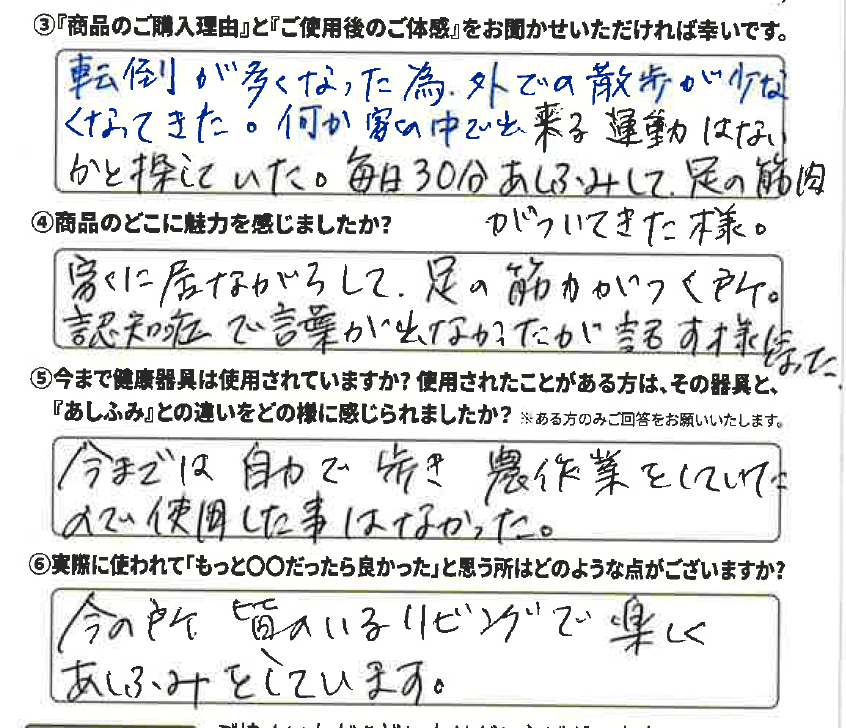 ③『商品のご購入理由』と『ご使用後のご体感』をお聞かせいただければ幸いです。
転倒が多くなった為、外での散歩が少な
くなってきた。何か家の中で出来る運動はない
かと探していた。毎日30分あしふみして、足の筋肉
がついてきた様。
④商品のどこに魅力を感じましたか?
家に居ながらして、足の筋力がつく所。
認知症で言葉が出なかったが話す様になった。
⑤今まで健康器具は使用されていますか?使用されたことがある方は、その器具と、
『あしふみ』との違いをどの様に感じられましたか? ※ある方のみご回答をお願いいたします。
今までは自力で歩き農作業をしていた
ので使用した事はなかった。
⑥実際に使われて「もっと〇〇だったら良かった」と思う所はどのような点がございますか?
今の所皆のいるリビングで楽しく
あしふみをしています。